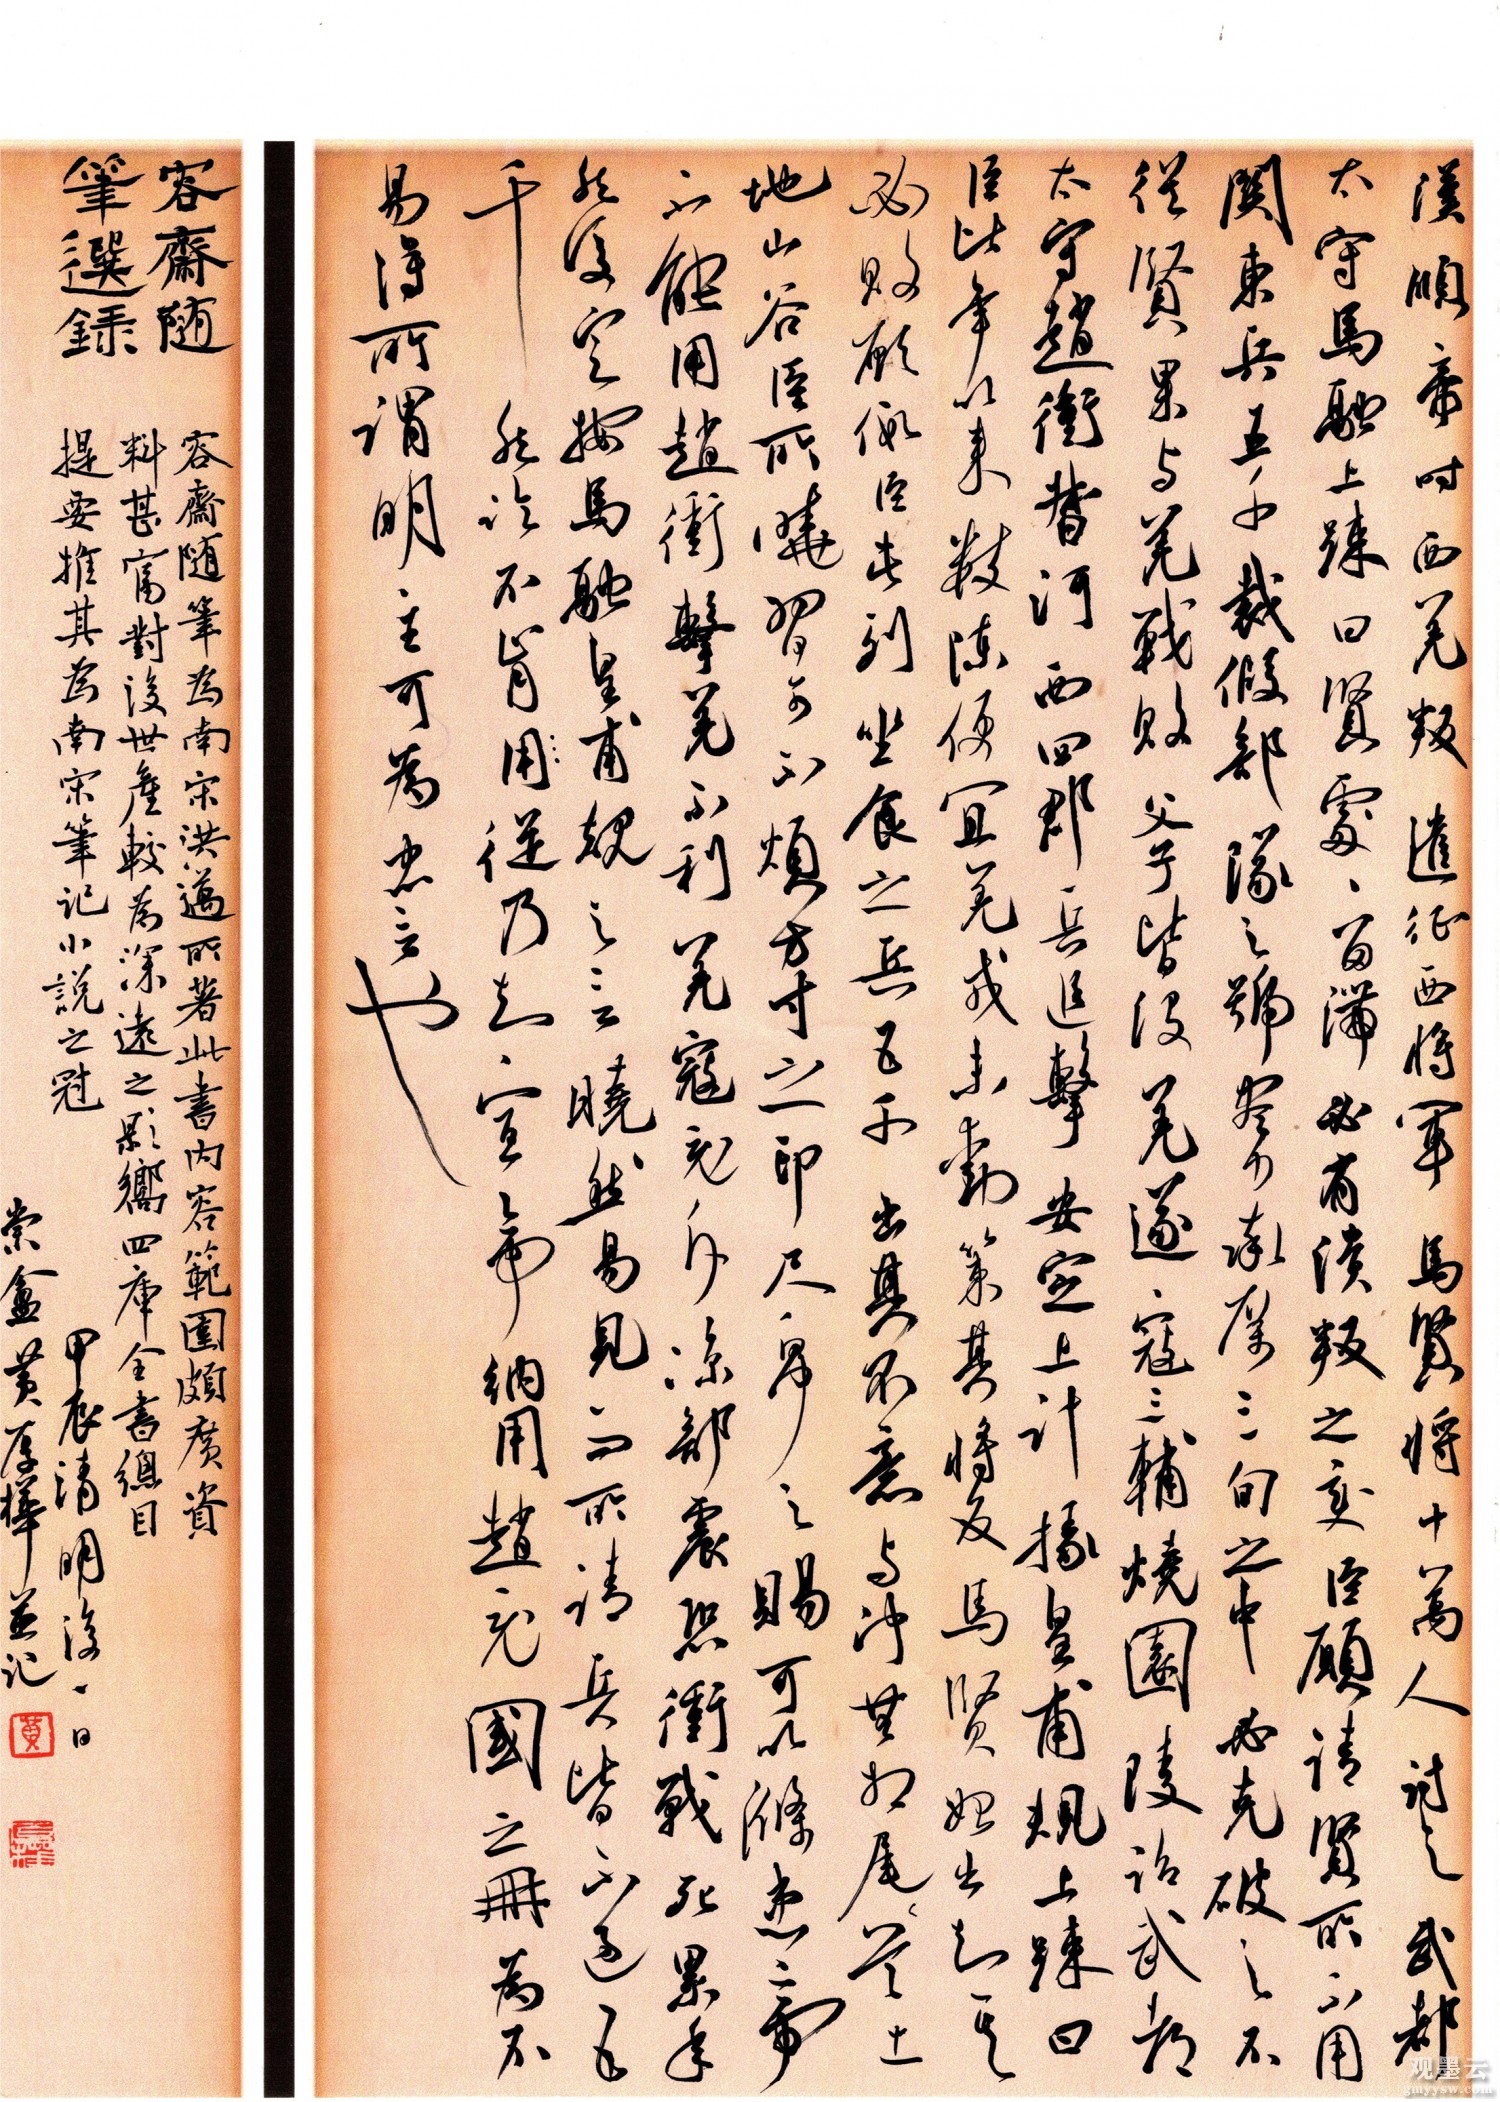 漢順帝時西羌叛遣征西將軍馬賢將十萬人討之武都
太守馬融上疏曰賢處、留滯必有潰叛之變臣願請賢所不用
関東兵五千裁假部隊之號盡力率厲三旬之中必克破之不
從賢果与羌戰敗父子皆没羌遂、寇三輔燒園陵詔武都
太守趙衝督河西四郡兵追擊安定上計掾皇甫規上疏曰
臣比年以来數陳便宜羌戎未動策其將反馬賢始出知其
必敗願假臣屯列坐食之兵五千出其不意与沖共相尾、首土
地山谷臣所曉習可不煩方寸之印尺帛之賜可以滌患、帝
不能用趙衝擊羌不利羌寇充斥涼部震恐衝戰死累年
然後定按馬融皇甫規之言曉然易見而所請兵皆不過五
千然訖不肯用從乃知、宣帝納用趙充國之冊為不
易得所謂明主可為忠言也
容齋随
筆選録
容齋随筆為南宋洪邁所著此書内容範圍頗廣資
料甚富對後世産較為深遠之影響四庫全書總目
提要推其為南宋筆記小説之冠
甲辰清明後、日
崇盦黄厚樺并記
黄
观墨云
gmyysw.com